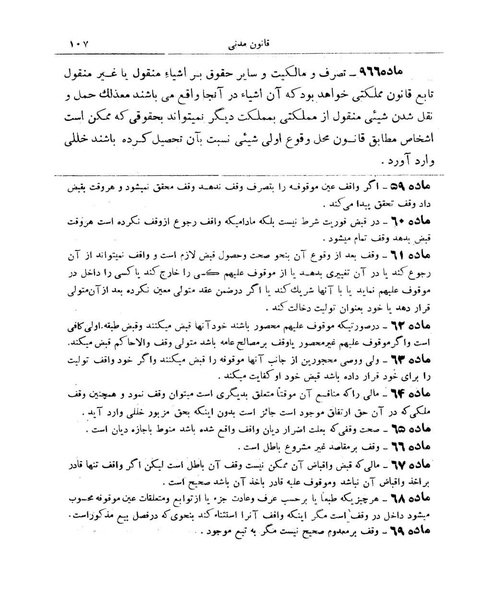 قانون مدنی ۱۰۷
ماده ۹۶۶ – تصرف و مالکیت و سایر حقوق بر اشیاء منقول یا غیر منقول
تابع قانون مملکتی خواهد بود که آن اشیاء در آنجا واقع می باشند معذلك حمل و
نقل شدن شیئی منقول از مملکتی بمملکت دیگر نمیتواند بحقوقی که ممکن است
اشخاص مطابق قانون محل وقوع اولی شیئی نسبت بآن تحصیل کرده باشند خللی
وارد آورد .
ماده ۵۹ – اگر واقف عین موقوفه را بتصرف وقف ندهد وقف محقق نمیشود و هروقت بقبض
داد وقف تحقق پیدا می کند .
ماده ۶۰ – در قبض فوریت شرط نیست بلکه مادامیکه واقف رجوع از وقف نکرده است هروقت
قبض بدهد وقف تمام میشود .
ماده ۶۱ – وقف بعد از وقوع آن بنحو صحت وحصول قبض لازم است و واقف نمیتواند از آن
رجوع کند یا در آن تغییری بدهد یا از موقوف علیهم کسی را خارج کند یا کسی را داخل در
موقوف علیهم نماید یا با آنها شریك کند یا اگر درضمن عقد متولی معین نکرده بعد ازآن متولی
قرار دهد یا خود بعنوان تولیت دخالت کند .
ماده ۶۲ – درصورتیکه موقوف علیهم محصور باشند خود آنها قبض میکنند وقبض طبقه. اولی کافی
است واگر موقوف علیهم غیر محصور یا وقف بر مصالح عامه باشد متولی وقف والاحاکم قبض میکند.
ماده ۶۳ – ولی ووصی محجورین از جانب آنها موقوفه را قبض میکنند واگر خود واقف تولیت
را برای خود قرار داده باشد قبض خود او کفایت میکند .
ماده ۶۴ – مالی را که منافع آن موقتاً متعلق بدیگری است میتوان وقف نمود و همچنین وقف
ملکی که در آن حق ارتفاق موجود است جائز است بدون اینکه بحق مزبور خللی وارد آید .
ماده ۶۵ – صحت وقفی که بعلت اضرار دیان واقف واقع شده باشد منوط باجازه دیان است .
ماده ۶۶ – وقف بر مقاصد غیر مشروع باطل است .
ماده ۶۷ – مالی که قبض واقباض آن ممکن نیست وقف آن باطل است لیکن اگر واقف تنها قادر
بر اخذ واقباض آن نباشد وموقوف علیه قادر باخذ آن باشد صحیح است .
ماده ۶۸ – هرچیزیکه طبعاً یا برحسب عرف وعادت جزء یا از توابع ومتعلقات عین موقوفه محسوب
میشود داخل در وقف است مگر اینکه واقف آنرا استثناء کند بنحوی که درفصل بیع مذکور است.
ماده ۶۹ – وقف بر معدوم صحیح نیست مگر به تبع موجود .